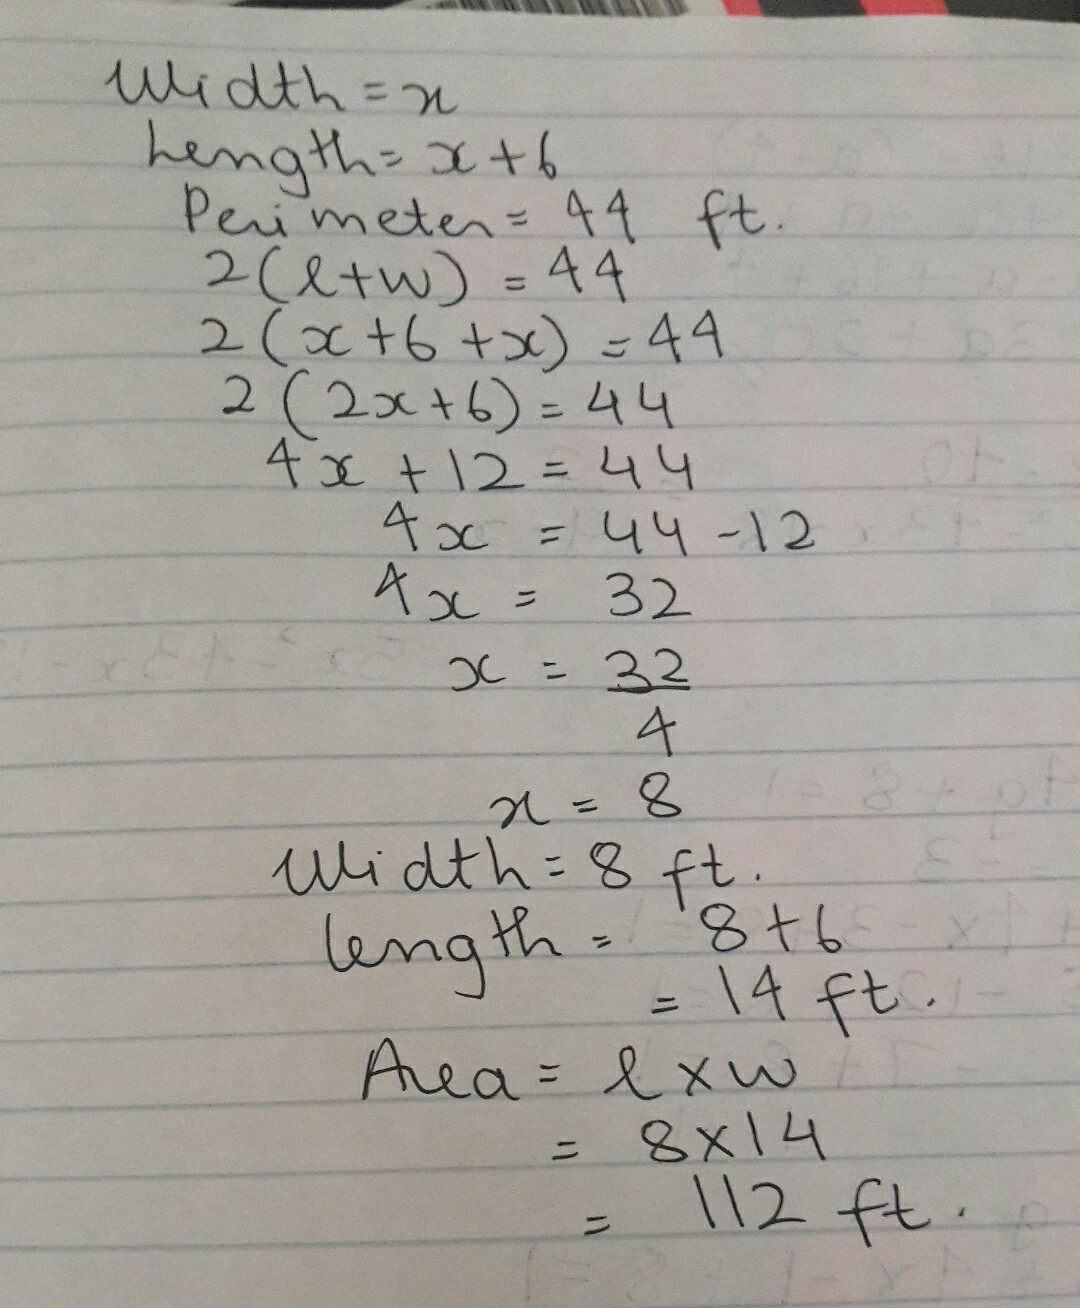 Width = x
Length = x + 6
Perimeter = 44 ft.
2(l+w) = 44
2(x+6+x) = 44
2(2x+6) = 44
4x + 12 = 44
4x = 44 - 12
4x = 32
x = 32
4
x = 8
Width = 8 ft.
length = 8+6
= 14 ft.
Area = l x w
= 8x14
= 112 ft.